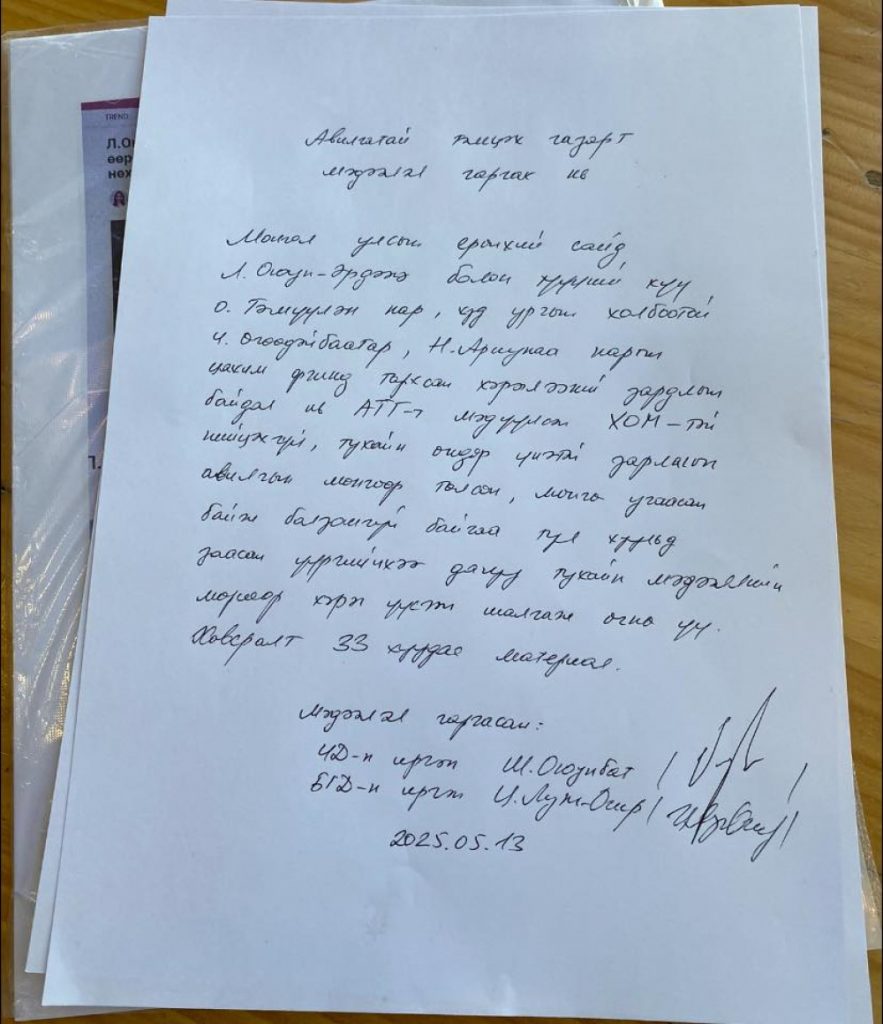 TREND
Л.О
өөр
нөх
Авилгатай тэмцэх газарт
мэдээлэл гаргах нь
Монгол улсын ерөнхий сайд
Л. Оюун-Эрдэнэ болон түүний хүү
О. Тэмүүлэн нар, худ ургын холбоотой
Ч. Өгөөдэйбаатар, Н. Ариунаа нарын
цахим орчинд тархсан хэрэглээний зардлын
байдал нь АТГ-т мэдүүлсэн ХОМ-тэй
нийцэхгүй, тухайн өндөр үнэтэй зарлагын
авилгын мөнгөөр төлсөн, мөнгө угаасан
байж болзошгүй байгаа тул хуульд
заасан үүргийнхээ дагуу тухайн мэдээллийн
мөрөөр хэрэг үүсгэн шалгаж өгнө үү.
Хавсралт 33 хуудас материал.
Мэдээлэл гаргасан:
ЧД-н иргэн Ш. Оюунбат / /
БГД-н иргэн Ц. Лут-Очир / /
2025.05.13